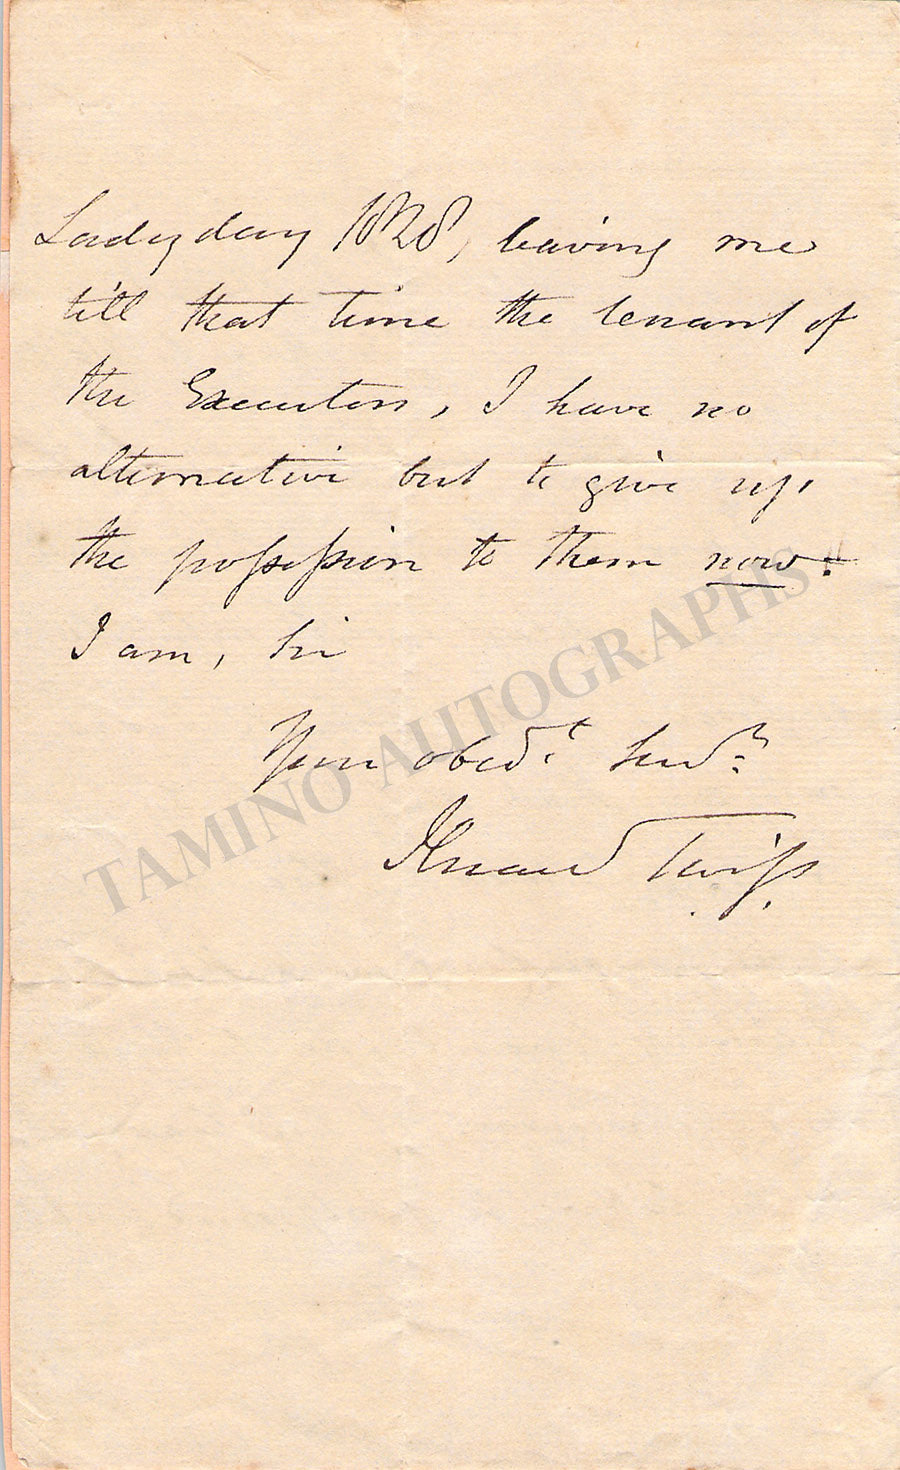 Ladyday 1828, leaving me
till that time the tenant of
the Executors, I have no
alternative but to give up
the possession to them now.
I am, Sir
Your obedt Servt
Horace Twiss.
TAMINO AUTOGRAPHS